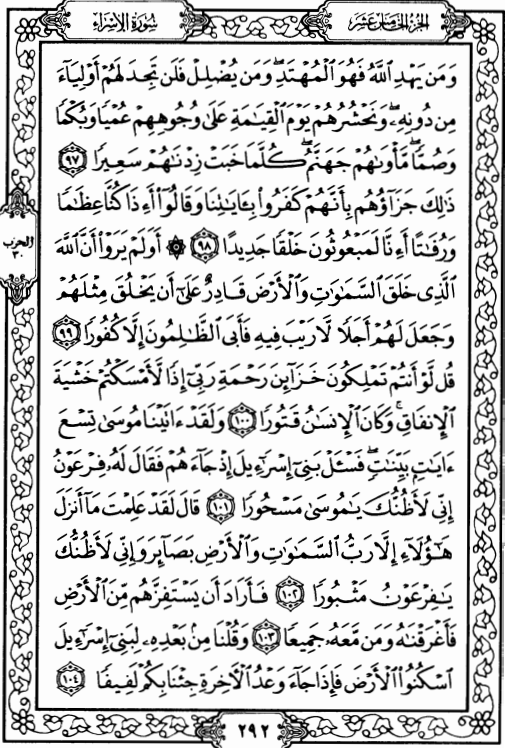 سُورَةُ الإِسْرَاءِ
الجُزْءُ الخَامِسُ عَشَرَ
وَمَن يَهْدِ ٱللَّهُ فَهُوَ ٱلْمُهْتَدِ ۖ وَمَن يُضْلِلْ فَلَن تَجِدَ لَهُمْ أَوْلِيَآءَ
مِن دُونِهِۦ ۖ وَنَحْشُرُهُمْ يَوْمَ ٱلْقِيَٰمَةِ عَلَىٰ وُجُوهِهِمْ عُمْيًا وَبُكْمًا
وَصُمًّا ۖ مَّأْوَىٰهُمْ جَهَنَّمُ ۖ كُلَّمَا خَبَتْ زِدْنَٰهُمْ سَعِيرًا ٩٧
ذَٰلِكَ جَزَآؤُهُم بِأَنَّهُمْ كَفَرُوا۟ بِـَٔايَٰتِنَا وَقَالُوٓا۟ أَءِذَا كُنَّا عِظَٰمًا
وَرُفَٰتًا أَءِنَّا لَمَبْعُوثُونَ خَلْقًا جَدِيدًا ٩٨ ۞ أَوَلَمْ يَرَوْا۟ أَنَّ ٱللَّهَ
ٱلَّذِى خَلَقَ ٱلسَّمَٰوَٰتِ وَٱلْأَرْضَ قَادِرٌ عَلَىٰٓ أَن يَخْلُقَ مِثْلَهُمْ
وَجَعَلَ لَهُمْ أَجَلًا لَّا رَيْبَ فِيهِ فَأَبَى ٱلظَّٰلِمُونَ إِلَّا كُفُورًا ٩٩
قُل لَّوْ أَنتُمْ تَمْلِكُونَ خَزَآئِنَ رَحْمَةِ رَبِّىٓ إِذًا لَّأَمْسَكْتُمْ خَشْيَةَ
ٱلْإِنفَاقِ ۚ وَكَانَ ٱلْإِنسَٰنُ قَتُورًا ١٠٠ وَلَقَدْ ءَاتَيْنَا مُوسَىٰ تِسْعَ
ءَايَٰتٍۭ بَيِّنَٰتٍ ۖ فَسْـَٔلْ بَنِىٓ إِسْرَٰٓءِيلَ إِذْ جَآءَهُمْ فَقَالَ لَهُۥ فِرْعَوْنُ
إِنِّى لَأَظُنُّكَ يَٰمُوسَىٰ مَسْحُورًا ١٠١ قَالَ لَقَدْ عَلِمْتَ مَآ أَنزَلَ
هَٰٓؤُلَآءِ إِلَّا رَبُّ ٱلسَّمَٰوَٰتِ وَٱلْأَرْضِ بَصَآئِرَ وَإِنِّى لَأَظُنُّكَ
يَٰفِرْعَوْنُ مَثْبُورًا ١٠٢ فَأَرَادَ أَن يَسْتَفِزَّهُم مِّنَ ٱلْأَرْضِ
فَأَغْرَقْنَٰهُ وَمَن مَّعَهُۥ جَمِيعًا ١٠٣ وَقُلْنَا مِنۢ بَعْدِهِۦ لِبَنِىٓ إِسْرَٰٓءِيلَ
ٱسْكُنُوا۟ ٱلْأَرْضَ فَإِذَا جَآءَ وَعْدُ ٱلْـَٔاخِرَةِ جِئْنَا بِكُمْ لَفِيفًا ١٠٤
الحزب
٣٠
٢٩٢